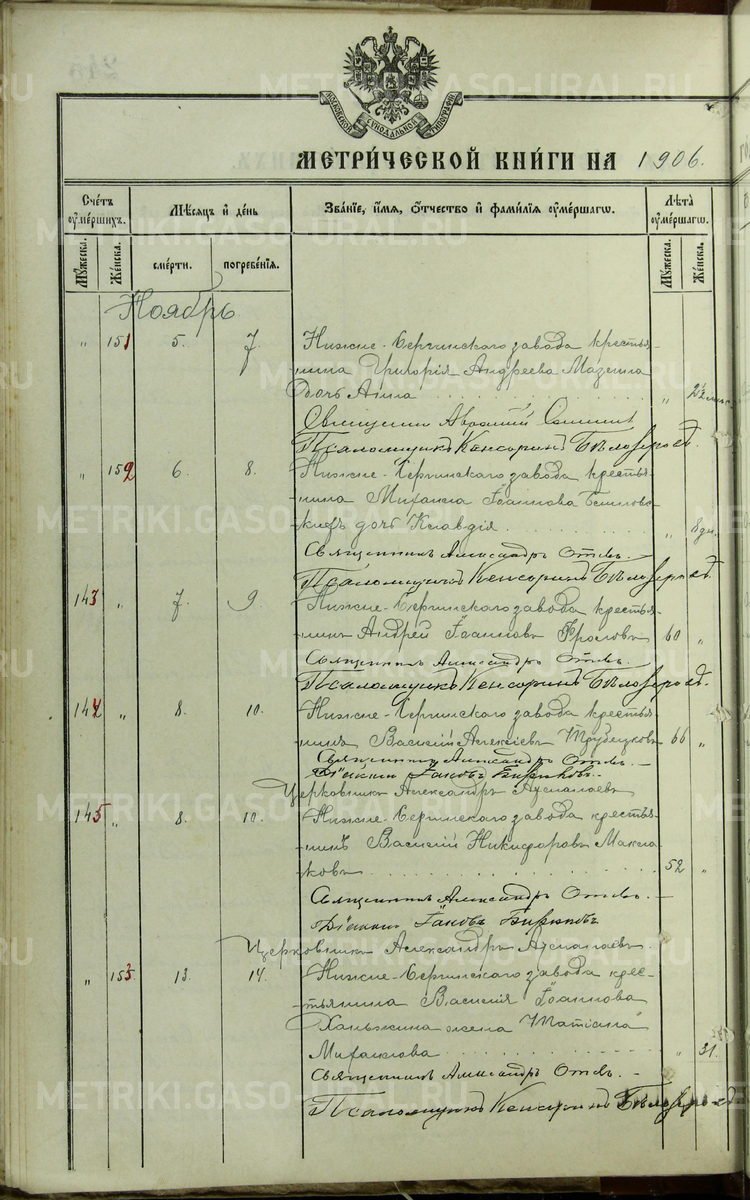 МЕТРИ́ЧЕСКОЙ КНИ́ГИ НА 1906.
Сче́тъ ᲂуме́ршихъ.
Мѣ́сяцъ и҆ де́нь
Зва́нїе, и҆́мѧ, ѻ҆́тчество и҆ фами́лїѧ ᲂуме́ршагѡ.
Лѣ́та ᲂуме́ршагѡ.
Му́жеска.
Же́нска.
сме́рти.
погребе́нїѧ.
Му́жеска.
Же́нска.
Ноябрь
" 151 5. 7. Нижне-Сергинскаго завода крестья-
нина Григорія Андреева Мазеина
дочь Анна " 2½ мѣс.
Священник
Псаломщикъ Кенсоринъ Бѣлозеровъ.
" 152 6. 8. Нижне-Сергинскаго завода крестья-
-нина Михаила Іоаннова
дочь Клавдія " 8 дн.
Священникъ Александръ Отевъ.
Псаломщикъ Кенсоринъ Бѣлозеровъ.
143 " 7. 9. Нижне-Сергинскаго завода крестья-
-нинъ Андрей Іоанновъ Фроловъ 60 "
Священникъ Александръ Отевъ.
Псаломщикъ Кенсоринъ Бѣлозеровъ.
144 " 8. 10. Нижне-Сергинскаго завода крестья-
-нинъ Василій Алексіевъ Трубецковъ 66 "
Священникъ Александръ Отевъ.
Діаконъ Іаковъ Бирюковъ.
Церковникъ Александръ
145 " 8. 10. Нижне-Сергинскаго завода крестья-
-нинъ Василій Никифоровъ Макла-
ковъ 52 "
Священникъ Александръ Отевъ.
Діаконъ Іаковъ Бирюковъ
Церковникъ Александръ
" 153. 13. 14. Нижне-Сергинскаго завода крес-
-тьянина Василія Іоаннова
Ханьжина жена Татіана
Михаилова " 31.
Священникъ Александръ Отевъ.
Псаломщикъ Кенсоринъ Бѣлозеровъ
METRIKI.GASO-URAL.RU